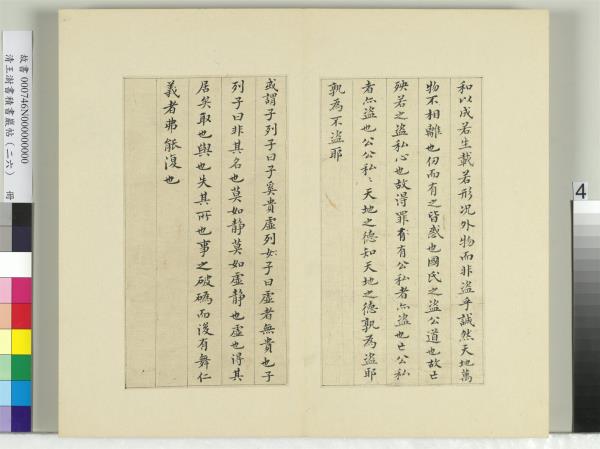 和以成若生載若形况外物而非盜乎誠然天地萬
物不相離也仞而有之皆惑也國氏之盜公道也故亡
殃若之盜私心也故得罪有有公私者亦盜也亡公私
者亦盜也公公私〻天地之德知天地之德孰為盜耶
孰為不盜耶
或謂子列子曰子奚貴虛列女子曰虛者無貴也子
列子曰非其名也莫如靜莫如虛靜也虛也得其
居矣取也與也失其所也事之破䃣而後有舞仁
義者弗能復也
故書000746N000000000
清王澍書積書巖帖(二六) 冊
4